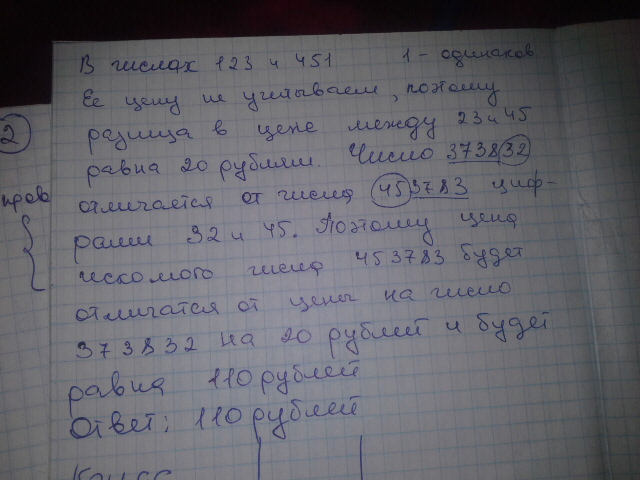 В числах 123 и 451 1 - одинаков
Ее цену не учитываем, поэтому
разница в цене между 23 и 45
равна 20 рублям. Число 373832
отличается от числа 453783 циф-
рами 32 и 45. Поэтому цена
искомого числа 453783 будет
отличатся от цены на число
373832 на 20 рублей и будет
равна 110 рублей
Ответ: 110 рублей
2